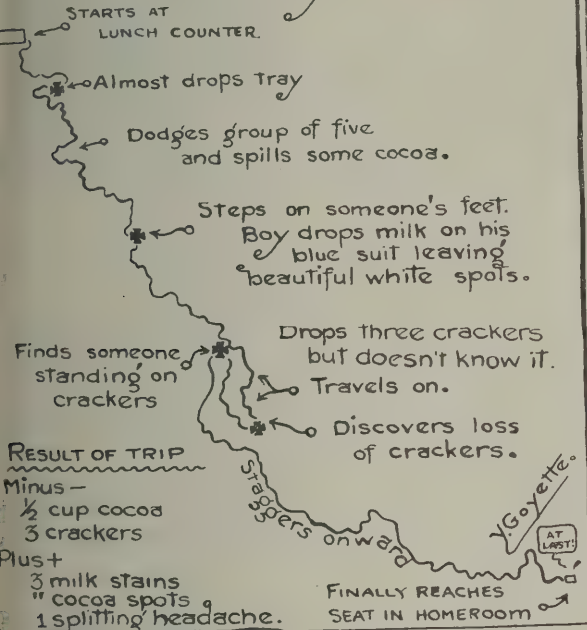 STARTS AT
LUNCH COUNTER.
Almost drops tray
Dodges group of five
and spills some cocoa.
Steps on someone's feet.
Boy drops milk on his
blue suit leaving
beautiful white spots.
Drops three crackers
but doesn't know it.
Travels on.
Finds someone
standing on
crackers
Discovers loss
of crackers.
Staggers onward
RESULT OF TRIP
Minus—
½ cup cocoa
3 crackers
Plus+
3 milk stains
" cocoa spots
1 splitting headache.
Y. Goyette.
AT
LAST!
FINALLY REACHES
SEAT IN HOMEROOM